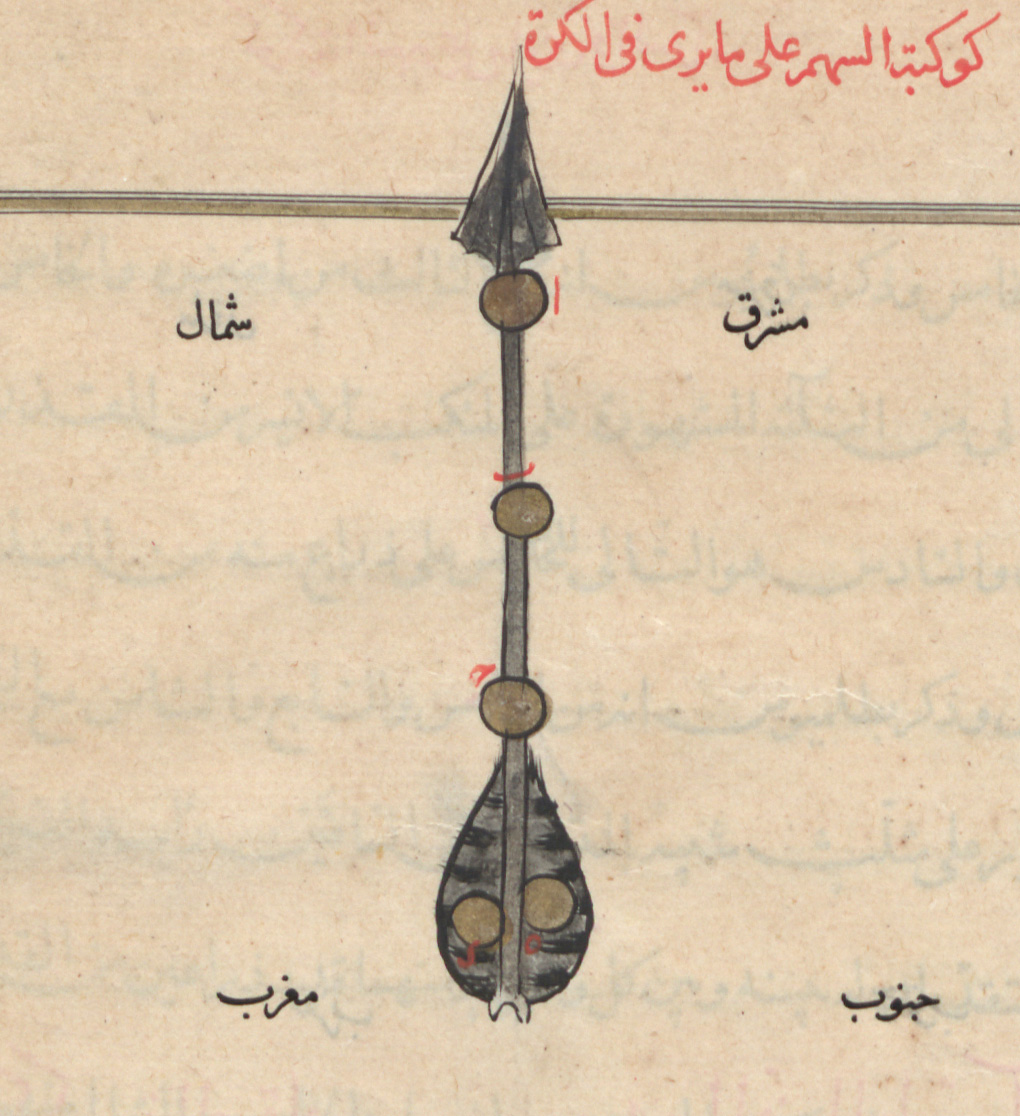 كوكبة السهم على ما يرى فى الكرة
ا
مشرق
شمال
ب
ح
د
ه
جنوب
مغرب